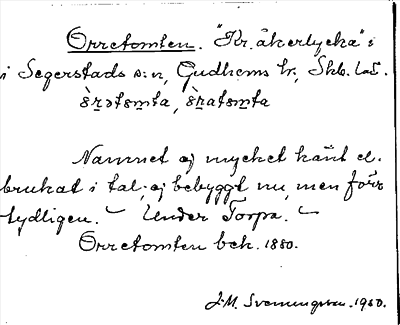 Orretomten. "Kr. åkerlycka" i
i Segerstads s:n, Gudhems hr, Skb. l.
Namnet ej mycket känt el.
brukat i tal; ej bebyggt nu, men förr
tydligen. – Under Torpa. –
Orretomten bek. 1880.
J. M. Svenungsson. 1930.